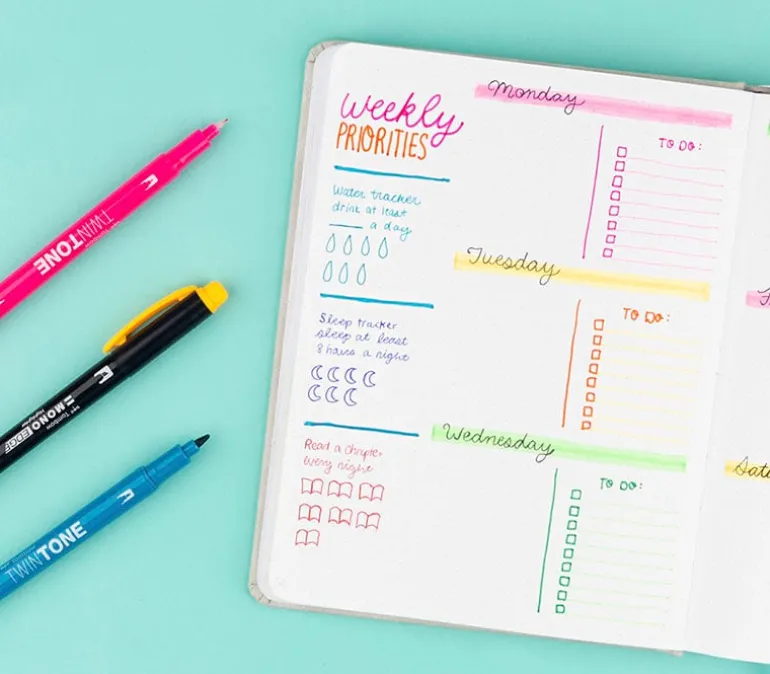 Weekly
PRIORITIES
Water tracker
drink at least
____ a day
Sleep tracker
sleep at least
8 hours a night
Read a chapter
every night
Monday
TO DO:
Tuesday
TO DO:
Wednesday
TO DO:
Satu
TWINTONE
Tombow
MONO EDGE
TWINTONE